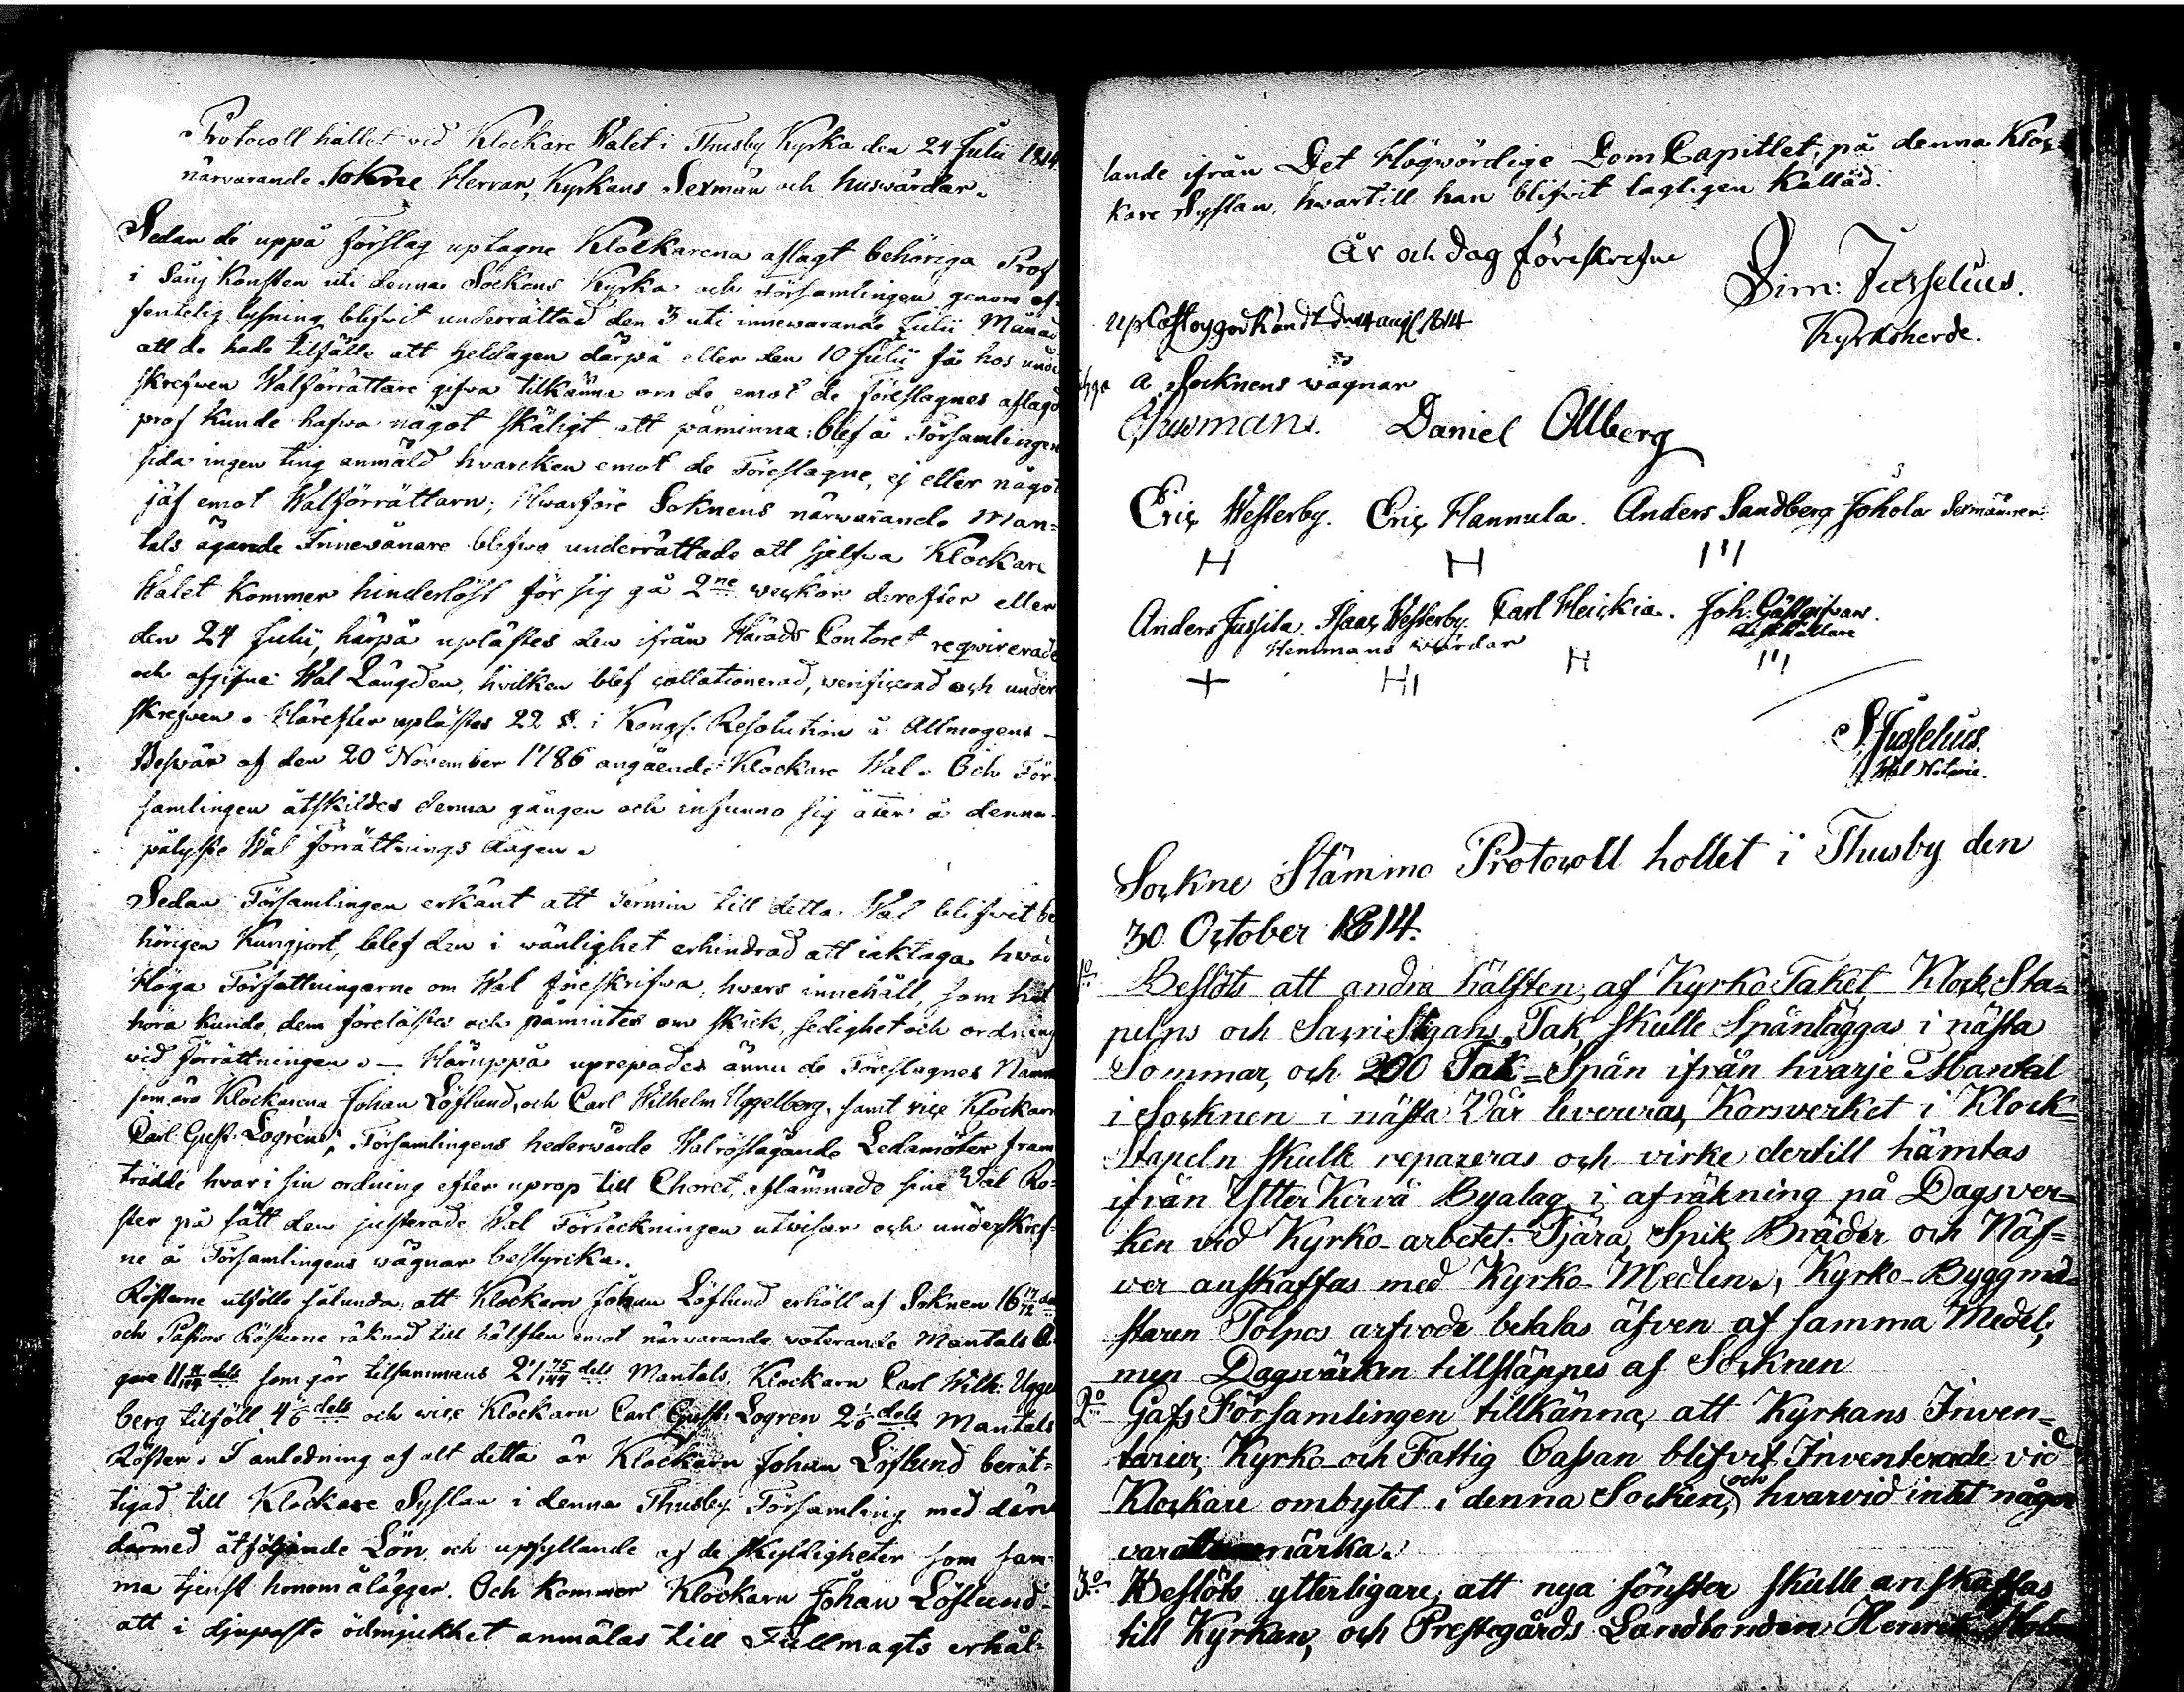 Protocoll hållet vid Klockare Walet i Thusby Kyrka den 24 Julii 1814.
närvarande Sokne Herrar, Kyrkans Sexmän och huswärdar.
Sedan de uppå förslag uptagne Klockarena aflagt behöriga Prof
i Sång konsten uti denna Sockens Kyrka och Församlingen genom of-
fentelig lysning blifvit underrättad den 3 uti innewarande Julii Månad
att de hade tilfälle att heldagen därpå eller den 10 Julii få hos und
skrefwen Walförrättare gifwa tilkänna om de emot de föreslagnes aflagd
prof kunde hafwa något skäligt att påminna; blef å Församlingen
sida ingen ting anmäld hvarcken emot de Föreslagne, ej eller något
jäf emot Walförrättarn; Hwarföre Soknens närwarande Man-
tals ägande Innevånare blefwo underrättade att sjelfva Klockare
Walet kommer hinderlöst för sig gå 2ne veckor derefter eller
den 24 Julii, härpå uplästes den ifrån Härads Contoret reqvirerade
och afgifne Wal Längden, hvilken blef collationerad, verificerad och under
skrefwen. Härefter uplästes 22 §. i Kongl. Resolution å Allmogens
Beswär af den 20 November 1786 angående Klockare Wal. Och För-
samlingen åtskildes denna gången och infunno sig åter å denna
pålyste Wal Förrättnings dagen.
Sedan Församlingen erkänt att Termin till detta Wal blifvit be
hörigen kungjort, blef den i wänlighet erhindrad att iakttaga hvad
Höga Författningarne om Wal föreskrifwa, hvars innehåll, som hit
höra kunde, dem föreläsdes och påmintes om skick, sedighet och ordning
vid Förrättningen. — Häruppå uprepades ännu de Föreslagnes Namn
som äro Klockarena Johan Löflund, och Carl Wilhelm Uggelberg, samt vice Klockarn
Carl Gust. Logrén; Församlingens hederwärde Walröstägande Ledamöter fram
trädde hvar i sin ordning efter uprop till Choret, aflämnade sina Wal Rö-
ster på sätt den justerade Wal Förteckningen utvisar och underskref-
ne å Församlingens wägnar bestyrka.
Rösterne utföllo sålunda, att Klockarn Johan Löflund erhöll af Soknen 16 17/72 del
och Pastors Rösterne räknad till hälften emot närvarande voterande Mantals ä
gare 11 dels som gör tilsammans 27 75/144 dels Mantals, Klockarn Carl Wilh: Uggel
berg tilföll 4 1/6 dels och vice Klockarn Carl Gust. Logren 2 1/6 dels Mantals
Röster. I anledning af alt detta är Klockarn Johan Löflund berät-
tigad till Klockare Sysslan i denna Thusby Församling med den
därmed åtföljande Lön, och upfyllande af de skyldigheter som sam-
ma tjenst honom ålägger. Och kommer Klockarn Johan Löflund
att i djupaste ödmjukhet anmälas till Fullmagts erhål-
lande ifrån Det Högwördige DomCapitlet, på denna Kloc-
kare Sysslan, hvartill han blifvit lagligen kallad.
År och dag föreskrefne
Sim: Jusselius.
Kyrkoherde.
upläst og godkändt den 14 augl 1814
å Socknens wägnar
Daniel Allberg
Eric Westerby. Eric Hannula. Anders Sandberg Johola Sexmännen.
H H
Anders Jussila. Isaac Westerby. Carl Heickia. Joh: Gästgifvars
Hemmans Wårdar
S. Jusselius.
Wal Notarie.
Sockne Stämmo Protocoll hollet i Thusby den
30 October 1814.
1o Beslöts att andra hälften af Kyrko-Taket, Klock-Sta-
pelns och Sacristigans Tak skulle Spånläggas i nästa
Sommar, och 200 Tak-Spån ifrån hvarje Mantal
i Socknen i nästa Vår leverera, Korsverket i Klock-
Stapeln skulle repareras och virke dertill hämtas
ifrån Ytter Kervå Byalag i afräkning på Dagsver-
ken vid Kyrko-arbetet. Tjära, Spik, Bräder och Näf-
ver anskaffas med Kyrko-Medlen, Kyrko-Byggmä-
staren Tolpos arfvode betalas äfven af samma Medel;
men Dagsvärken tillsläppes af Socknen
2o Gafs Församlingen tillkänna, att Kyrkans Inven-
tarier, Kyrko- och Fattig Cassan blifvit Inventerade vid
Klockare ombytet i denna Socken, och hvarvid intet något
var märka.
3o Beslöts ytterligare, att nya fönster skulle anskaffas
till Kyrkan, och Prestegårds Landbonden Henrik